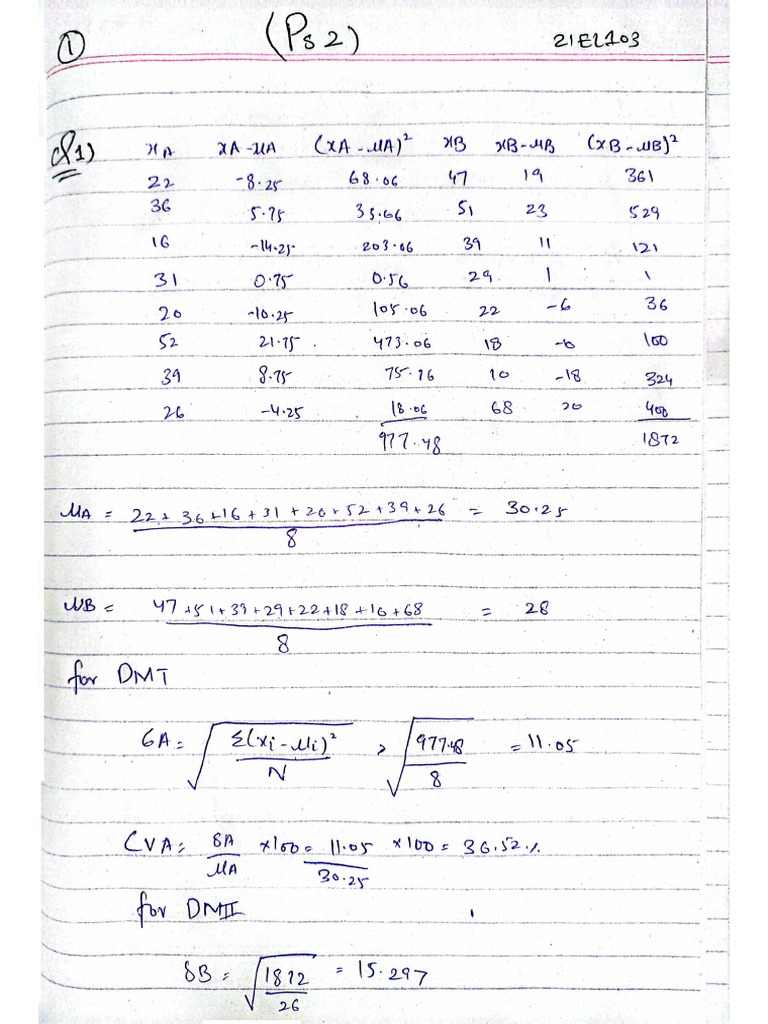 ①
(Ps 2)
21EL103
Q1) xA xA-μA (xA-μA)² xB xB-μB (xB-μB)²
22 -8.25 68.06 47 19 361
36 5.75 33.06 51 23 529
16 -14.25 203.06 39 11 121
31 0.75 0.56 29 1 1
20 -10.25 105.06 22 -6 36
52 21.75 473.06 18 -0 100
39 8.75 75.76 10 -18 324
26 -4.25 18.06 68 20 400
977.48 1872
μA = 22+36+16+31+20+52+39+26 / 8 = 30.25
μB = 47+51+39+29+22+18+10+68 / 8 = 28
for DMT
σA = √Σ(xi-μi)² / N = √977.48 / 8 = 11.05
CVA = δA / μA ×100 = 11.05 / 30.25 ×100 = 36.52%
for DMII
δB = √1872 / 26 = 15.297